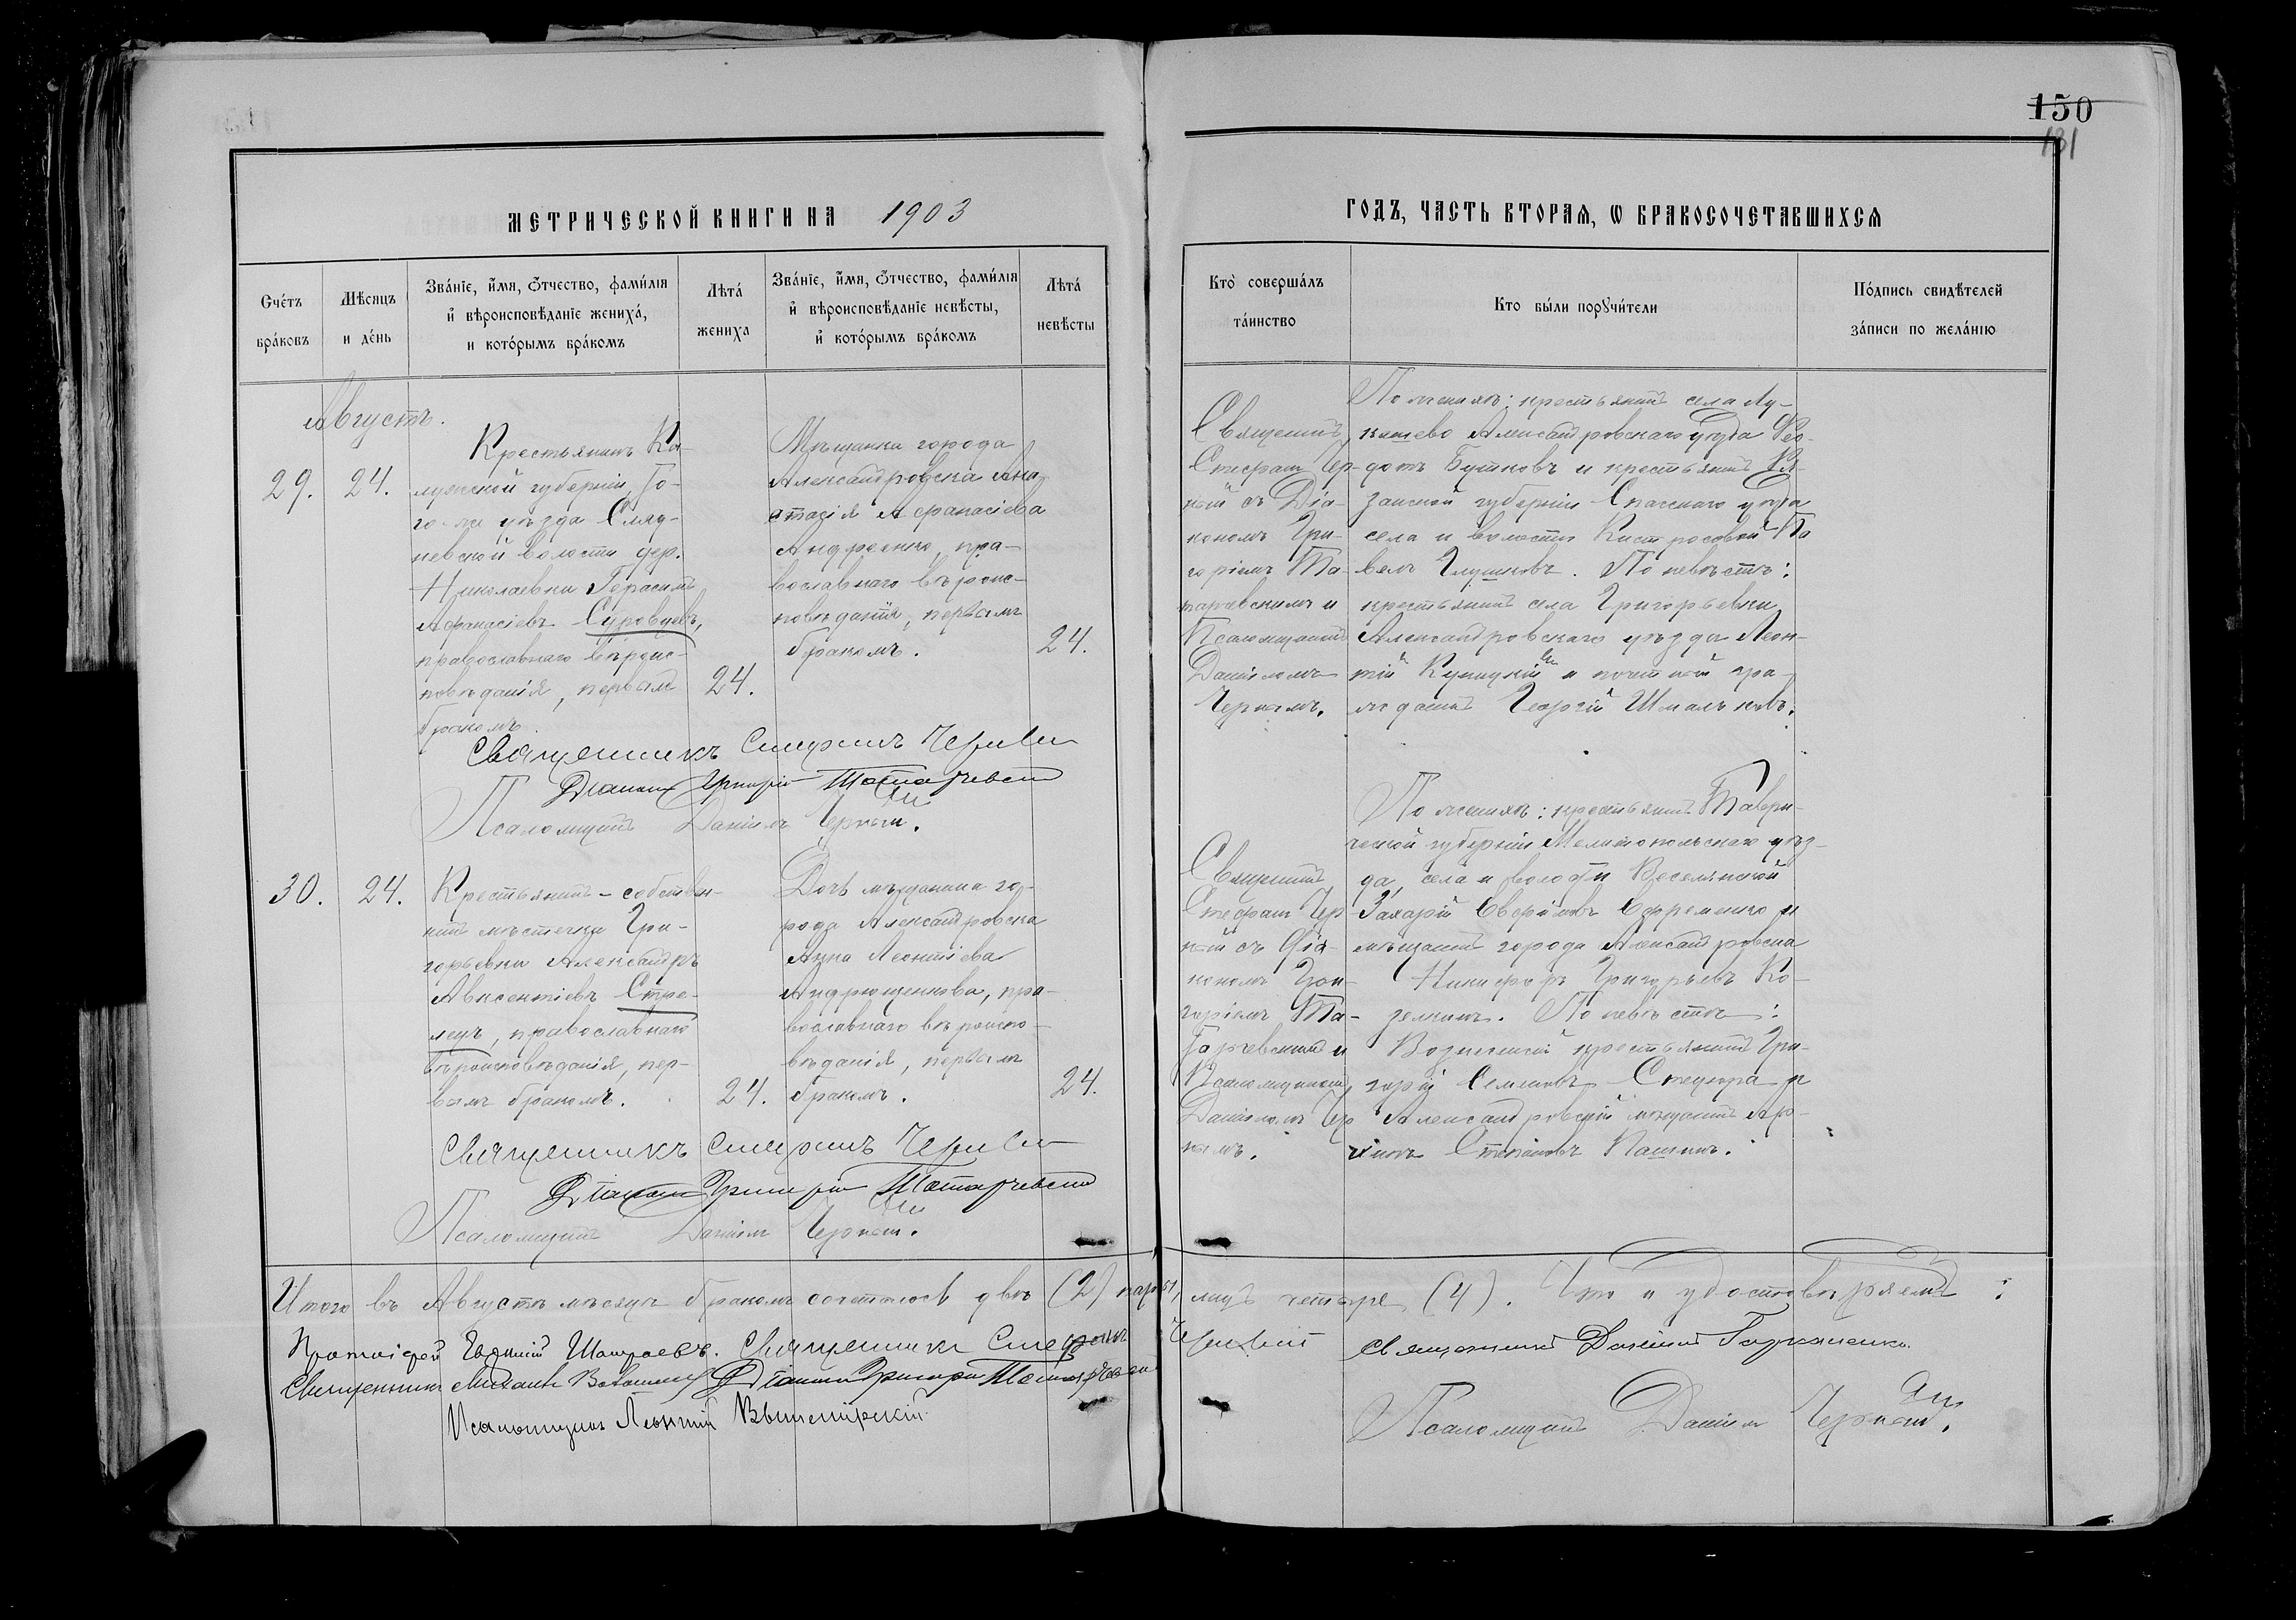 150
181
МЕТРИЧЕСКОЙ КНИГИ НА 1903
ГОДЪ, ЧАСТЬ ВТОРАЯ, Ѡ БРАКОСОЧЕТАВШИХСЯ
Счéтъ брáковъ
Мѣ́сяцъ и дéнь
Звáнїе, и҆́мя, ѻ҆́тчество, фами́лїя и҆ вѣроисповѣ́данїе женихá, и котóрымъ брáкомъ
Лѣтá жениха
Звáнїе, и҆́мя, ѻ҆́тчество, фами́лїя и҆ вѣроисповѣ́данїе невѣ́сты, и҆ котóрымъ брáкомъ
Лѣтá невѣ́сты
Кто̀ совершáлъ тáинство
Кто бы́ли порꙋчи́тели
Пóдпись свидѣ́телей зáписи по желáнїю
Августъ.
29.
24.
Крестьянинъ Ка-
лужской губерніи,
уѣзда
волости дер.
Николаевки Герасимъ
Афанасіевъ Суровцевъ,
православнаго вѣроис-
повѣданія, первымъ
бракомъ.
24.
Мѣщанка города
Александровска Ана-
стасія Афанасіева
Андреенко, пра-
вославнаго вѣроис-
повѣданія, первымъ
бракомъ.
24.
Священникъ
Стефанъ Чер-
ный съ Діа-
кономъ Гри-
горіемъ Та-
тарчевскимъ и
Псаломщикомъ
Даніиломъ
Чернымъ.
По женихѣ: крестьянинъ села Лу-
кашево Александровскаго уѣзда Фео-
дотъ Бутковъ и крестьянинъ Ря-
занской губерніи Спасскаго уѣзда
села и волости Кистросовой Па-
велъ Глушковъ. По невѣстѣ:
крестьянинъ села Григорьевки
Александровскаго уѣзда Леон-
тій Куницкій и почетный гра-
жданинъ Георгій Шмальковъ.
Священникъ Стефанъ Черный
Діаконъ Григорій Татарчевскій
Псаломщикъ Даніилъ Черный.
30.
24.
Крестьянинъ-собствен-
никъ мѣстечка Гри-
горьевки Александръ
Авксентіевъ Стре-
лецъ, православнаго
вѣроисповѣданія, пер-
вымъ бракомъ.
24.
Дочь мѣщанина го-
рода Александровска
Анна Леонтіева
Андрющенкова, пра-
вославнаго вѣроиспо-
вѣданія, первымъ
бракомъ.
24.
Священникъ
Стефанъ Чер-
ный съ Діа-
кономъ Гри-
горіемъ Та-
тарчевскимъ и
Псаломщикомъ
Даніиломъ Чер-
нымъ.
По женихѣ: крестьянинъ Таври-
ческой губерніи Мелитопольскаго уѣз-
да, села и волости Веселянской
Захарій Ефремовъ Ефременко и
мѣщанинъ города Александровска
Никифоръ Григорьевъ Ко-
зелкинъ. По невѣстѣ:
крестьянинъ Гри-
горій Семеновъ Стецюра и
Александровскій мѣщанинъ
Степановъ Пашкинъ.
Священникъ Стефанъ Черный
Діаконъ Григорій Татарчевскій
Псаломщикъ Даніилъ Черный.
Итого въ Августѣ мѣсяцѣ бракомъ сочеталось двѣ (2) пары, лицъ четыре (4). Что и удостовѣряемъ:
Протоіерей Евфимій Священникъ Стефанъ Черный Священникъ Даніилъ
Священникъ Михаилъ Діаконъ Григорій Татарчевскій
Псаломщикъ Леонтій Вышемірскій
Псаломщикъ Даніилъ Черный.